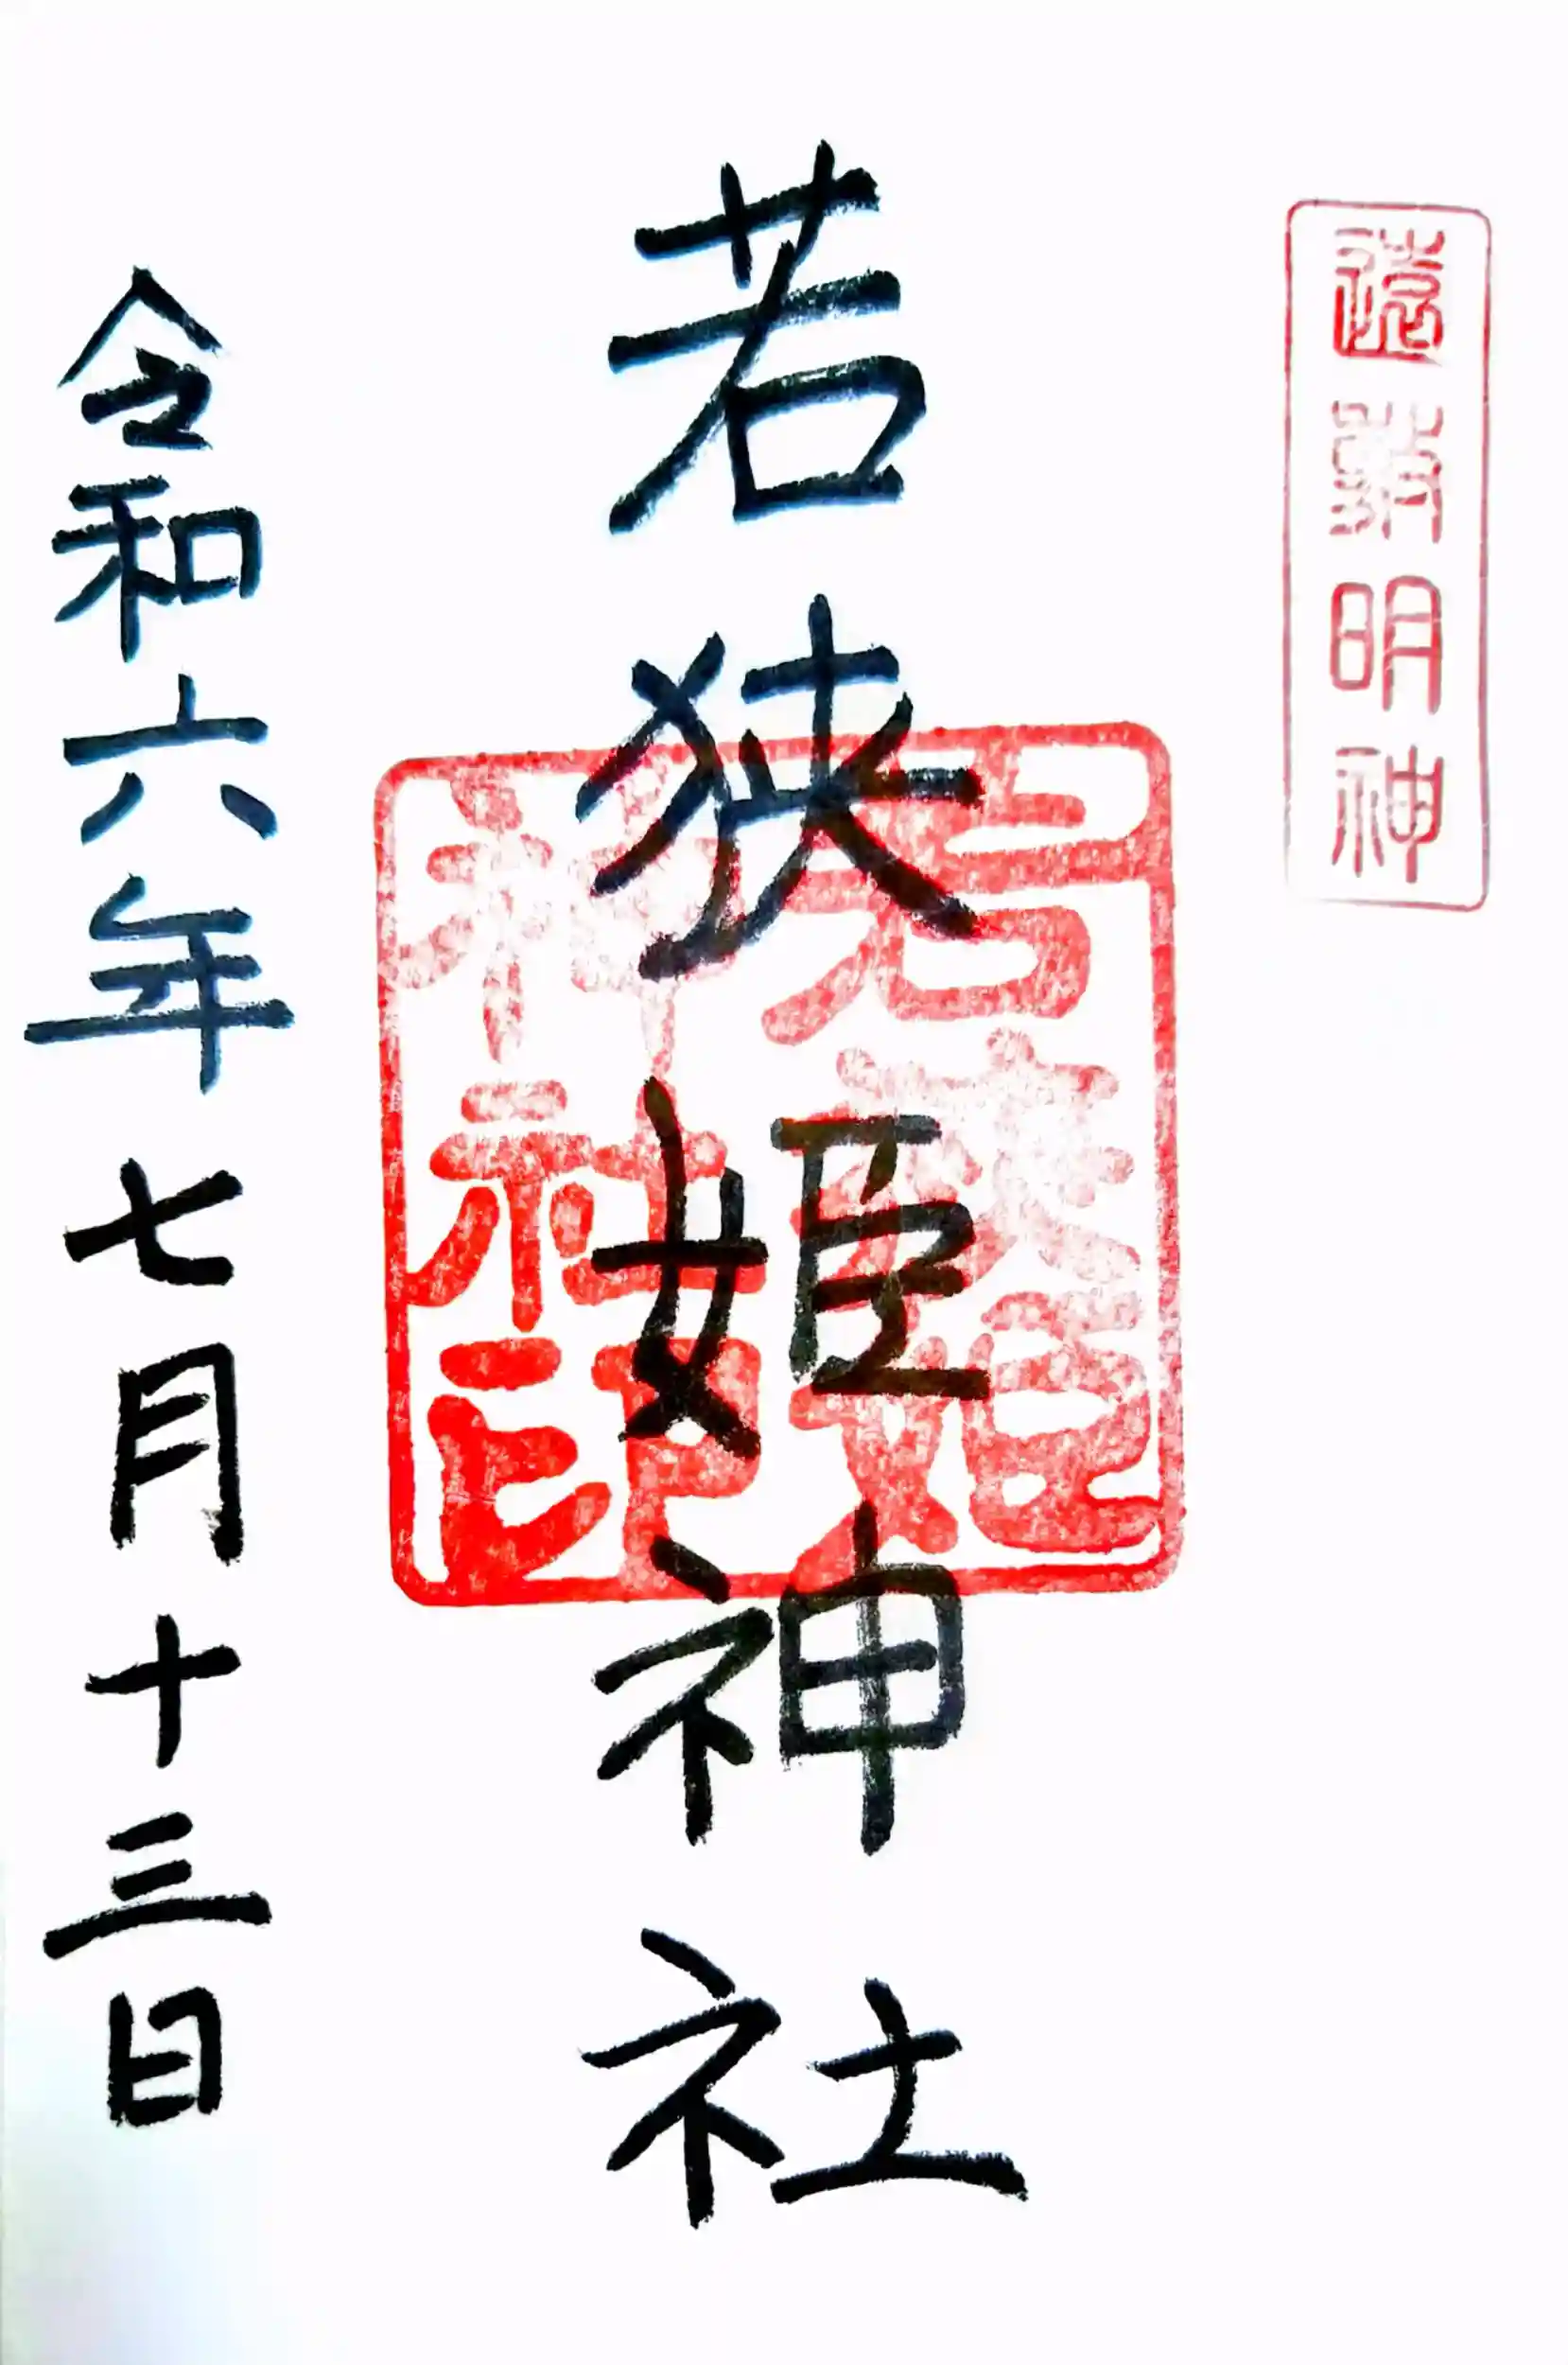 遠敷明神
若狭姫神社
若狭姫
神社印
令和六年七月十三日